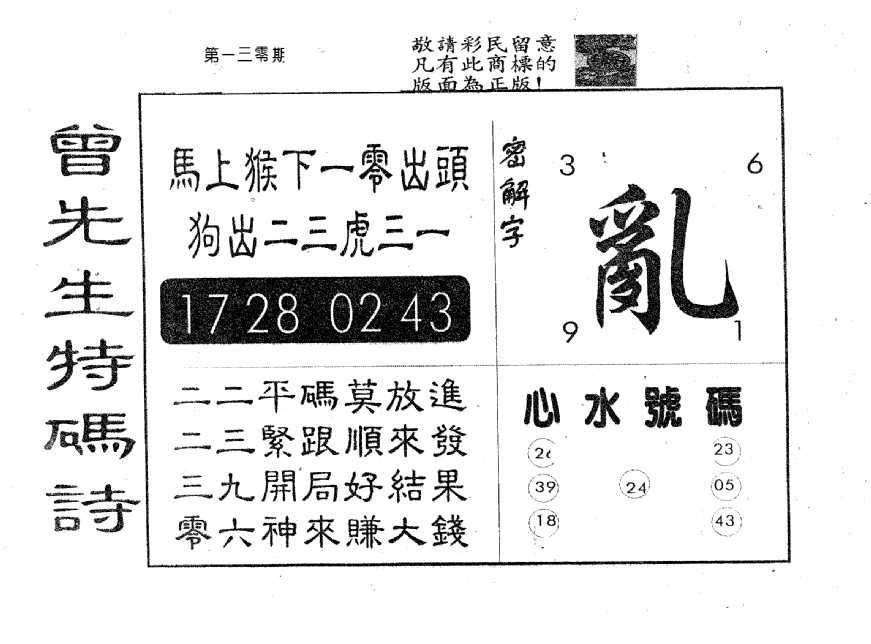 第一三零期
敬請彩民留意
凡有此商標的
版面為正版！
曾先生特碼詩
馬上猴下一零出頭
狗出二三虎三一
17 28 02 43
密解字
3 6
亂
9 1
二二平碼莫放進
二三緊跟順來發
三九開局好結果
零六神來賺大錢
心水號碼
26 23
39 24 05
18 43